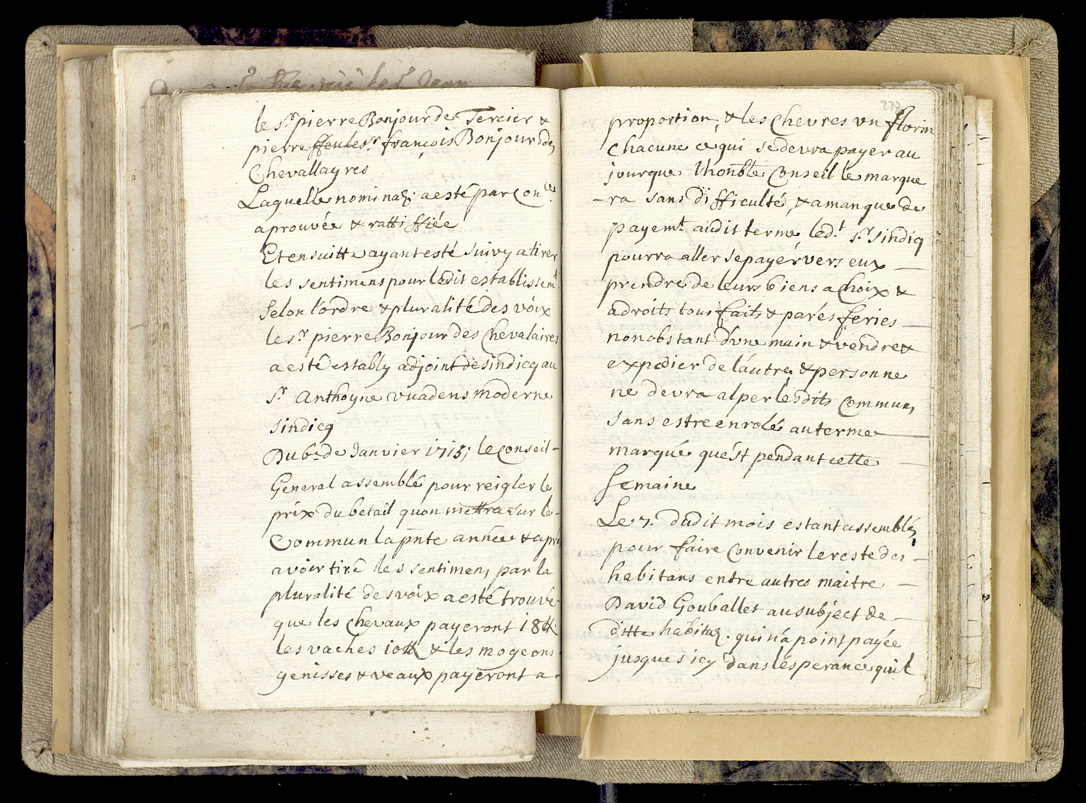 le Sr pierre Bonjour de Tercier &
pierre ffeu le Sr françois Bonjour des
Chevallayres
Laquelle nominaõn a esté par Conel
aprouvée & rattiffiée
Et ensuitte ayant esté suivy a tirer
les sentimens pour ledit establissemt
selon l'ordre & pluralité des voix
le Sr pierre Bonjour des Chevalaires
a esté estably adjoint de sindicq au
Sr Anthoyne vuadens moderne
sindicq
Du 6e de Janvier 1715; le Conseil
General assemblé pour reigler le
prix du betail quon mettra sur le
Commun la pnte année & apres
avoir tiré les sentimens par la
pluralité des voix a esté trouvé
que les chevaux payeront 18
les vaches 10 & les mogeons
genisses & veaux payeront a
272
proportion, & les Chevres vn florin
Chacune ce qui se devra payer au
jour que lhonble Conseil le marque
-ra sans difficultés, & a manque de
payemt audit terme led.t Sr sindiq
pourra aller se payér vers eux
prendre de leurs biens a choix &
adroits tous faits & pares feries
nonobstant d'vne main & vendre &
expedier de láutre & personne
ne devra alper lesdits Communs
sans estre enrolé au terme
marqué quést pendant cette
semaine
Le 7e dudit mois estant assemblés
pour faire Convenir le reste des
habitans entre autres maitre
David Gouballet au subject de
ditte habitaõn qui n'a point payée
jusques icy dans lésperance quil